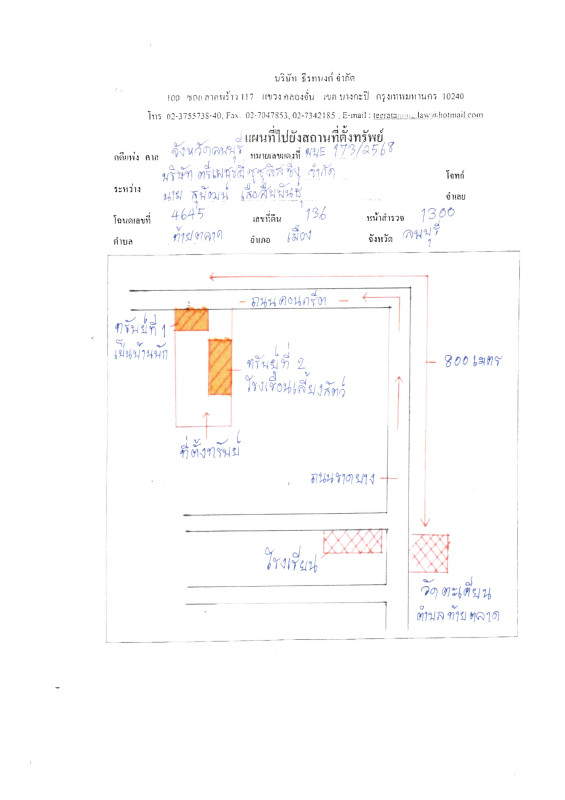 บริษัท ธีรทนงค์ จำกัด
100 ซอย ลาดพร้าว 117 แขวง คลองจั่น เขต บางกะปิ กรุงเทพมหานคร 10240
โทร 02-3755738-40, Fax. 02-7047853, 02-7342185 , E-mail :
แผนที่ไปยังสถานที่ตั้งทรัพย์
คดีแพ่ง ศาล จังหวัดลพบุรี หมายเลขแดงที่ ผบE 173/2568
บริษัท ตรีเพชรอีซูซุลิสซิ่ง จำกัด โจทก์
ระหว่าง
นาย สุพัฒน์ เสือสืบพันธุ์ จำเลย
โฉนดเลขที่ 4645 เลขที่ดิน 136 หน้าสำรวจ 1300
ตำบล ท้ายตลาด อำเภอ เมือง จังหวัด ลพบุรี
ถนนคอนกรีต
ทรัพย์ที่ 1
เป็นบ้านพัก
800 เมตร
ทรัพย์ที่ 2
โรงเรือนเลี้ยงสัตว์
ที่ตั้งทรัพย์
ถนนราดยาง
โรงเรียน
วัดตะเคียน
ตำบลท้ายตลาด